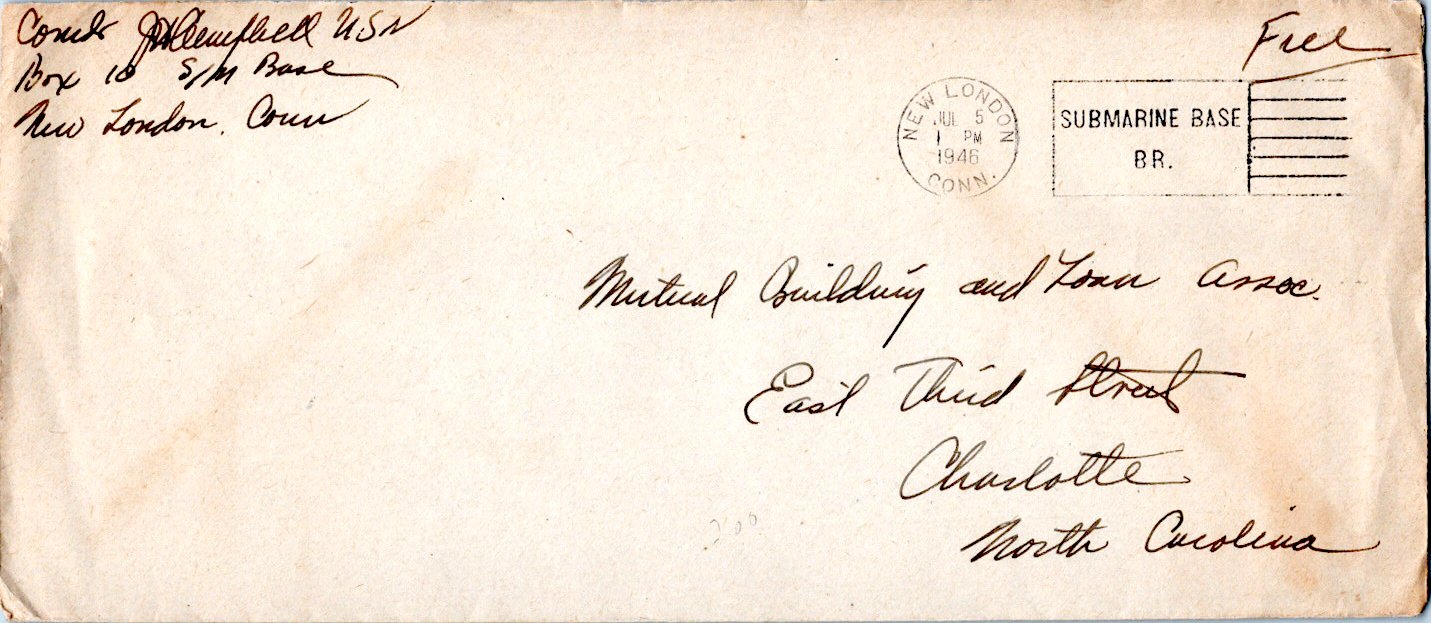 Comdr JH Campbell USN
Box 10 S/M Base
New London, Conn
Free
NEW LONDON
JUL 5
1 PM
1946
CONN.
SUBMARINE BASE
BR.
Mutual Building and Loan Assoc.
East Third Street
Charlotte
North Carolina
200